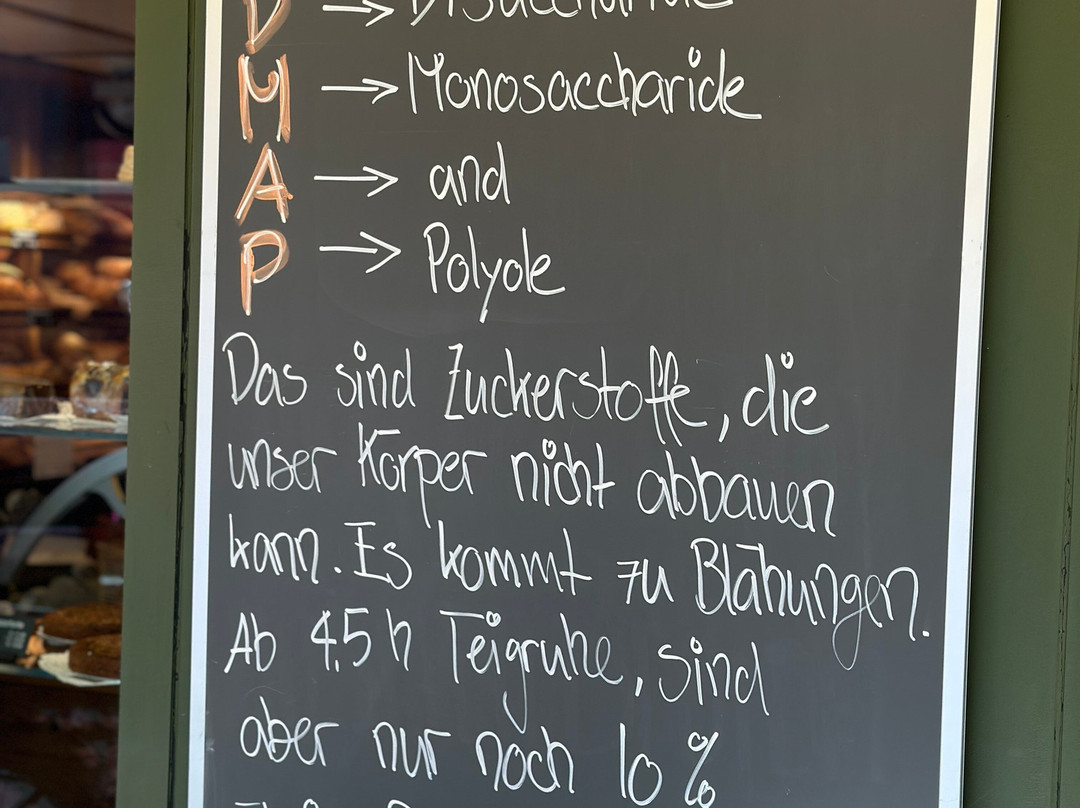 D → Disaccharide
M → Monosaccharide
A → and
P → Polyole
Das sind Zuckerstoffe, die
unser Körper nicht abbauen
kann. Es kommt zu Blähungen.
Ab 4,5 h Teigruhe, sind
aber nur noch 10 %